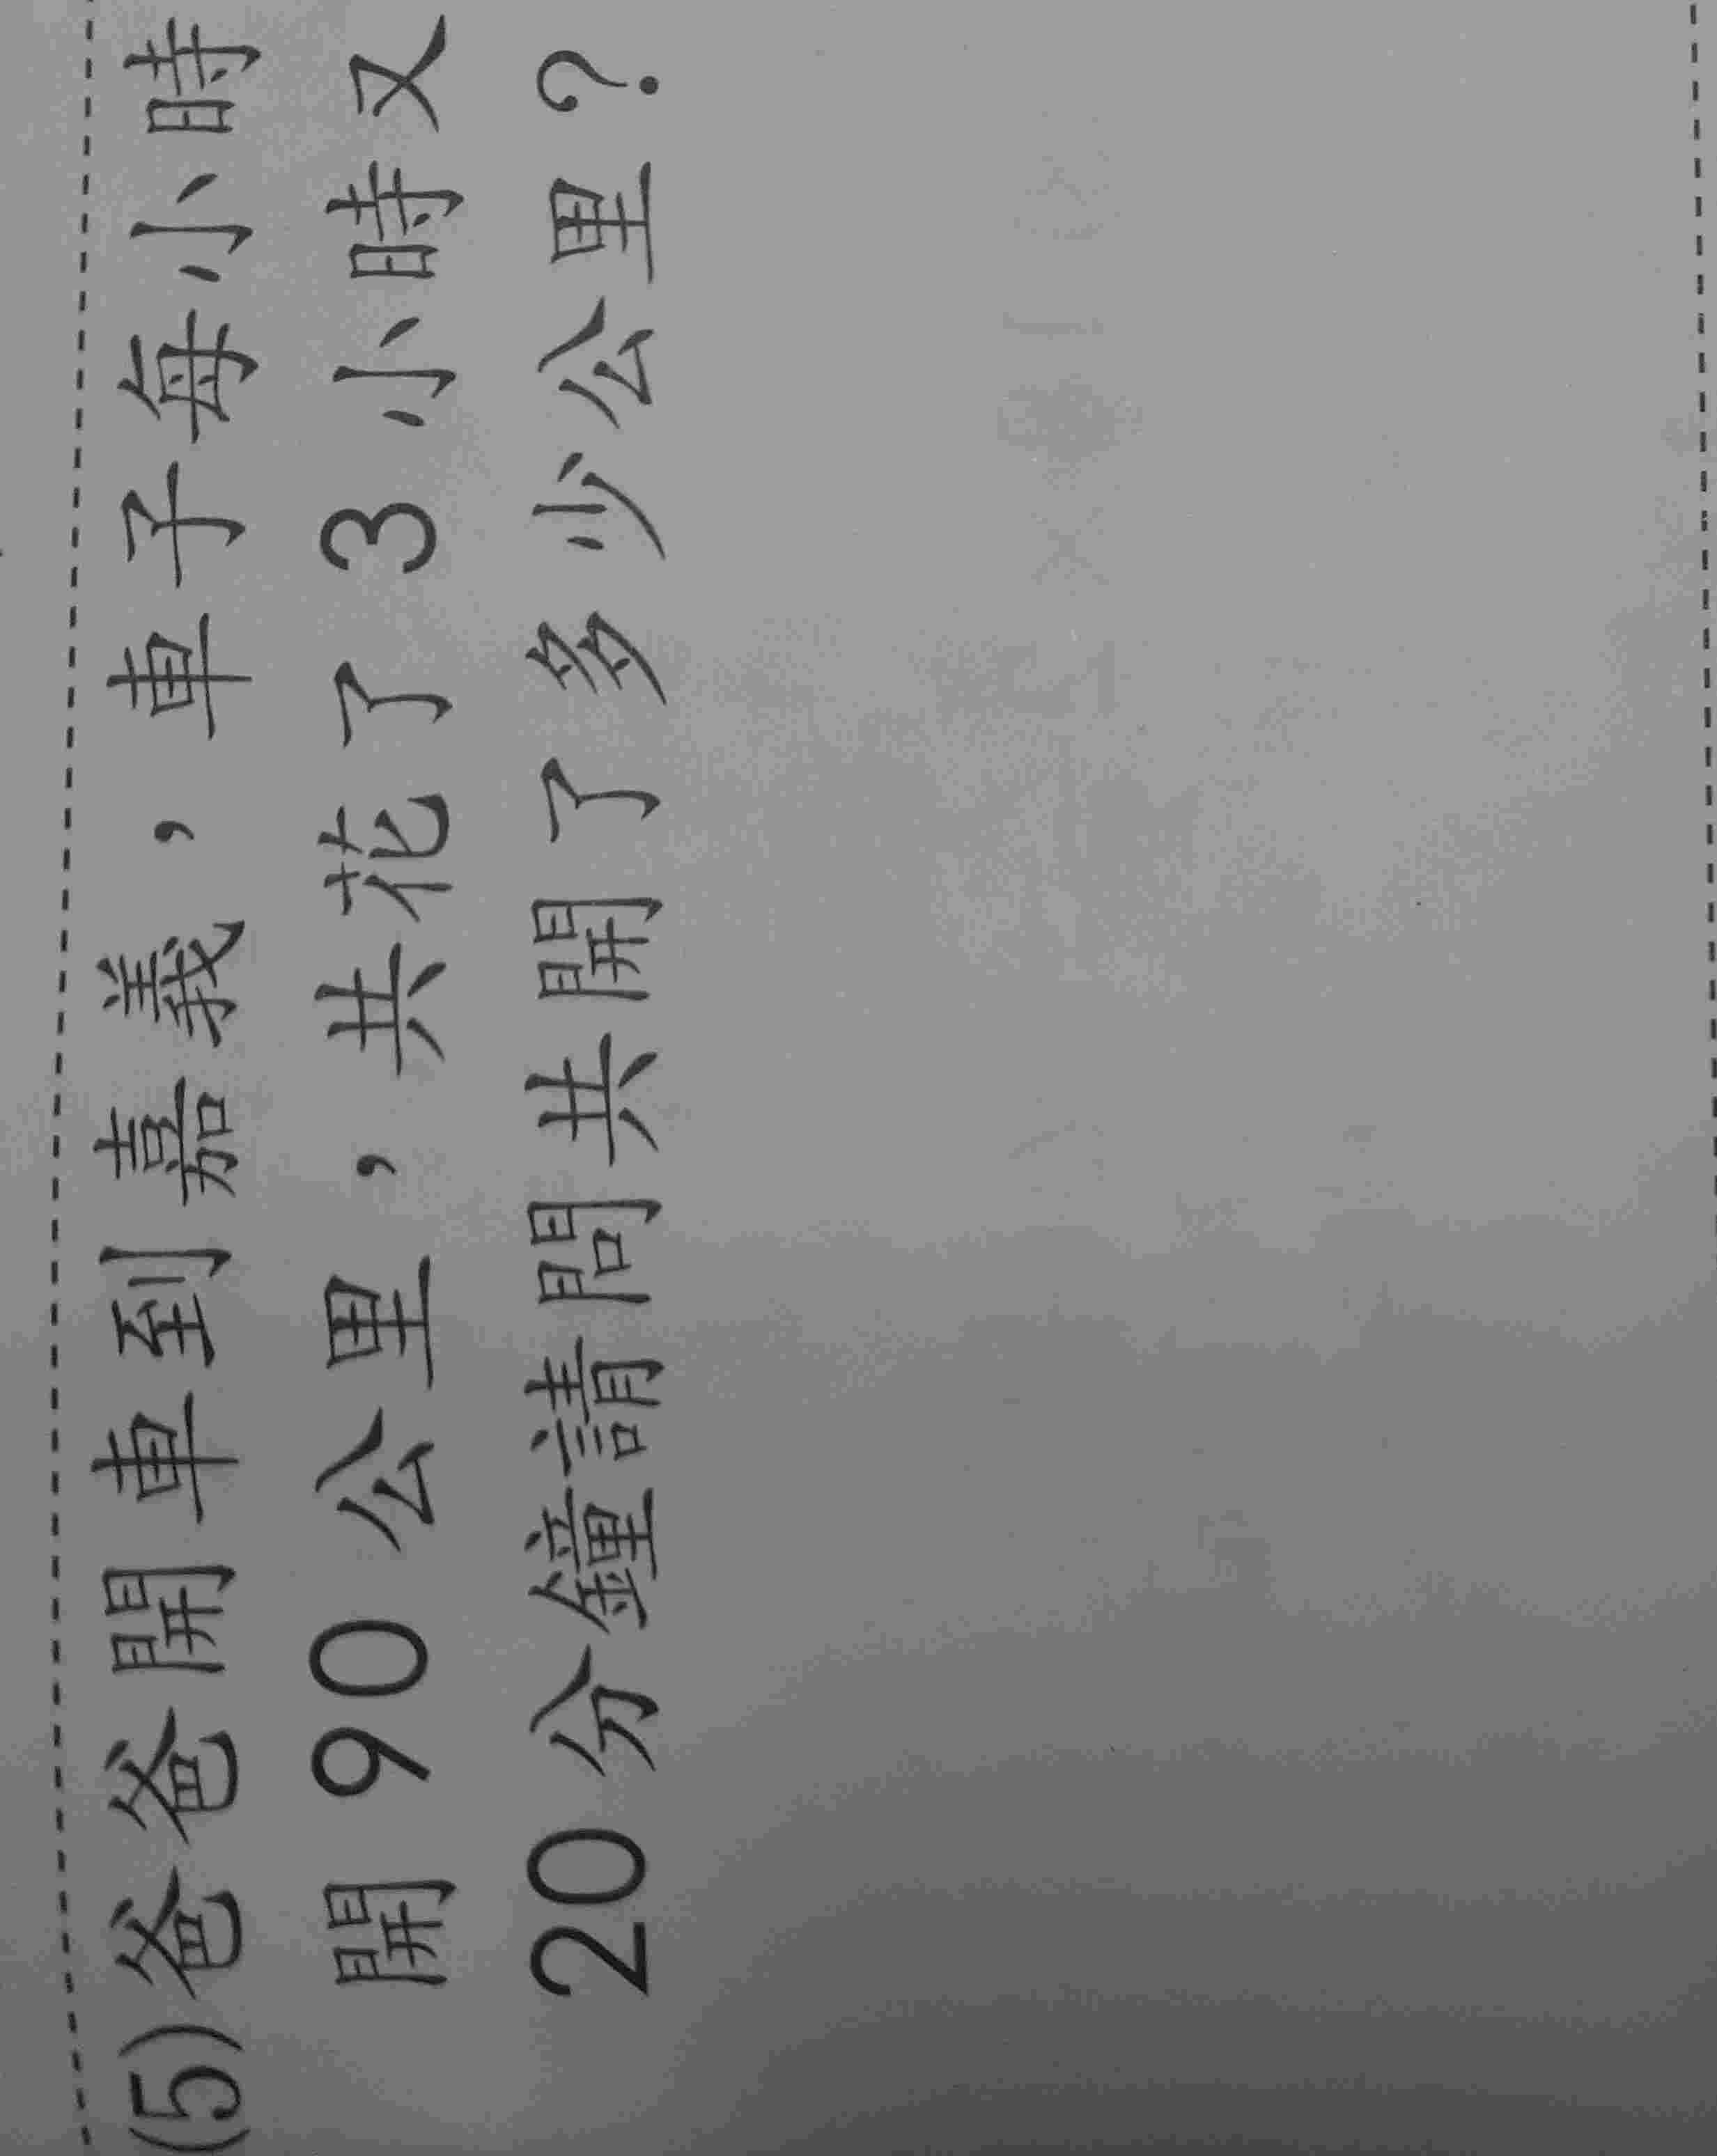 (5)爸爸開車到嘉義，車子每小時
開 90 公里，共花了 3 小時又
20 分鐘請問共開了多少公里？